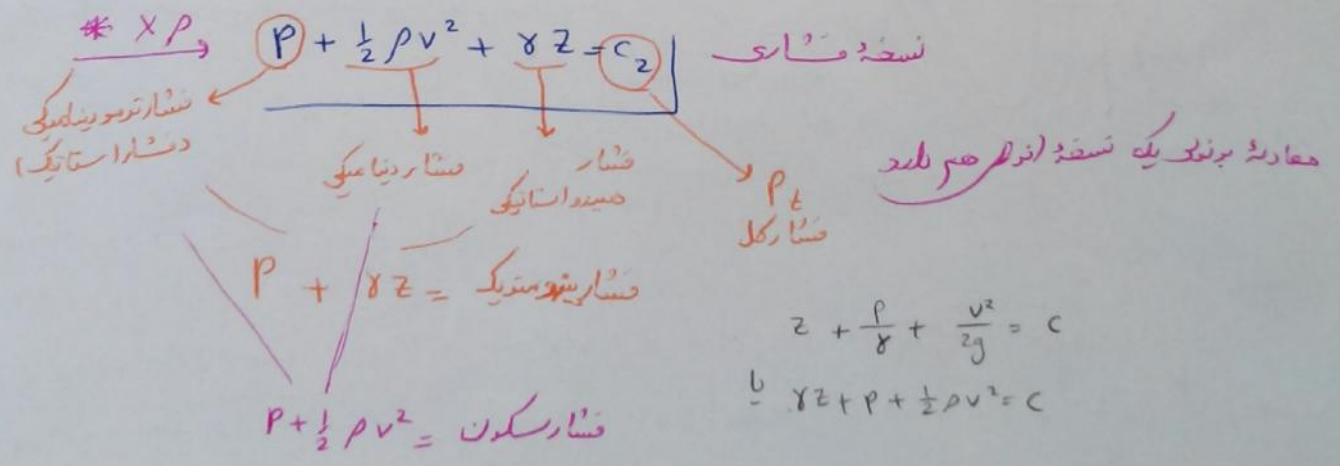 * × ρ
P + 1/2 ρv² + γz = c₂
نسخهٔ فشاری
فشار ترمودینامیکی
(فشار استاتیک)
فشار دینامیکی
فشار
هیدرواستاتیکی
P_t
فشار کل
معادلهٔ برنولی یک نسخهٔ انرژی هم دارد
P + γz = فشار پیزومتریک
z + P/γ + v²/2g = c
یا γz + P + 1/2 ρv² = c
P + 1/2 ρv² = فشار سکون